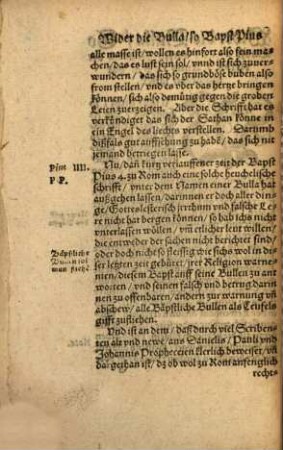 Wider die Bulla / so Bapst Pius
alle masse ist / wollen es hinfort also fein ma-
chen / das es lust sein sol / vnnd ist sich zuver-
wundern / das sich so grundböse buben also
from stellen / vnd es vber das hertze bringen
können / sich also demütig gegen die groben
Leien zuerzeigen. Aber die Schrifft hat es
verkündiget das sich der Sathan könne in
ein Engel des liechts verstellen. Darumb
dißfals gut auffsehung zu habē / das sich nie-
jemand betriegen lasse.
Pius IIII.
P P.
Nu dan kurtz verlauffener zeit der Bapst
Pius 4. zu Rom auch eine solche heuchelische
schrifft / vnter dem Namen einer Bulla hat
außgehen lassen / darinnen er doch alle din-
ge / Gotteslesterisch jrrthum vnnd falsche Le-
re nicht hat bergen können / so hab ichs nicht
vnterlassen wöllen / vñ ehrlicher leut willen /
Bäpstliche
die entweder der sachen nicht berichtet sind /
oder doch nicht so fleissig wie sichs wol in die-
ser letzten zeit gebüret / jrer Religion warne-
men / diesem Bapst auff seine Bullen zu ant
worten / vnd seinen falsch vnd betrug darin-
nen zu offenbaren / andern zur warnung vñ
abschew / alle Bäpstliche Bullen als Teufels
gifft zufliehen.
Vnd ist an dem / das durch viel Scriben-
ten alt vnd newe / aus Danielis / Pauli vnd
Johannis Propheceien klerlich beweiset / vñ
dargethan ist / dz ob wol zu Rom anfenglich
rechts-